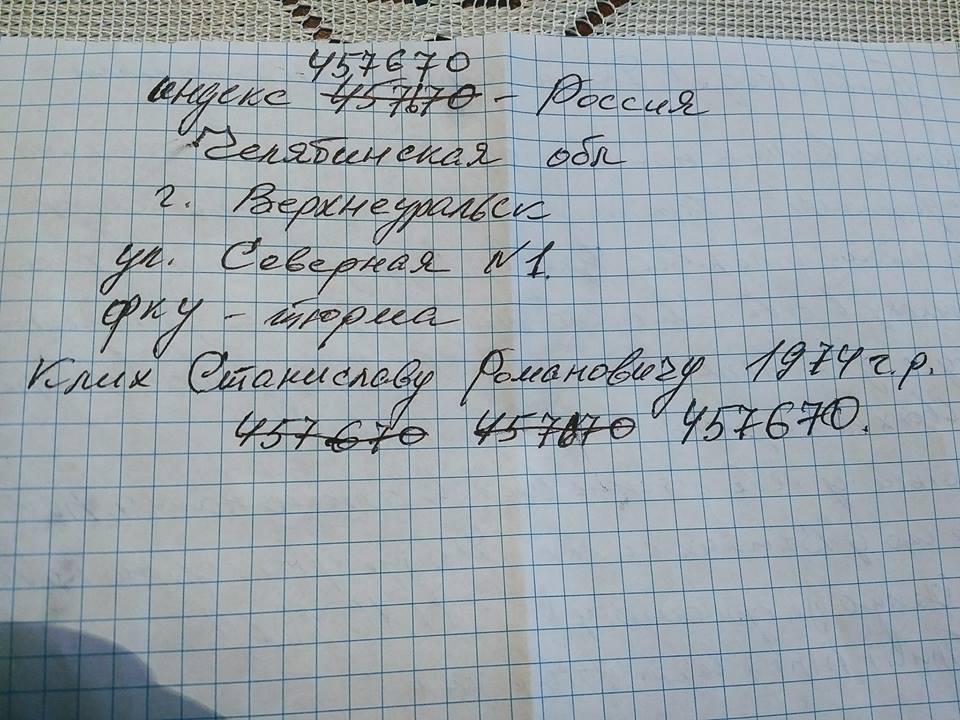 457670
индекс 457670 - Россия
Челябинская обл
г. Верхнеуральск
ул. Северная №1.
фку - тюрма
Клих Станиславу Романовичу 1974 г.р.
457670 457670 457670.